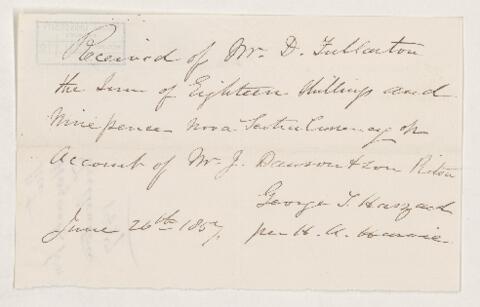 Received of Mr. D. Fullarton
the Sum of Eighteen Shillings and
Nine pence Nova Scotia Currency on
Account of Mr. J. Dawson & Son Pictou
George T. Haszard
June 26th 1857, per H. A. Harvie.